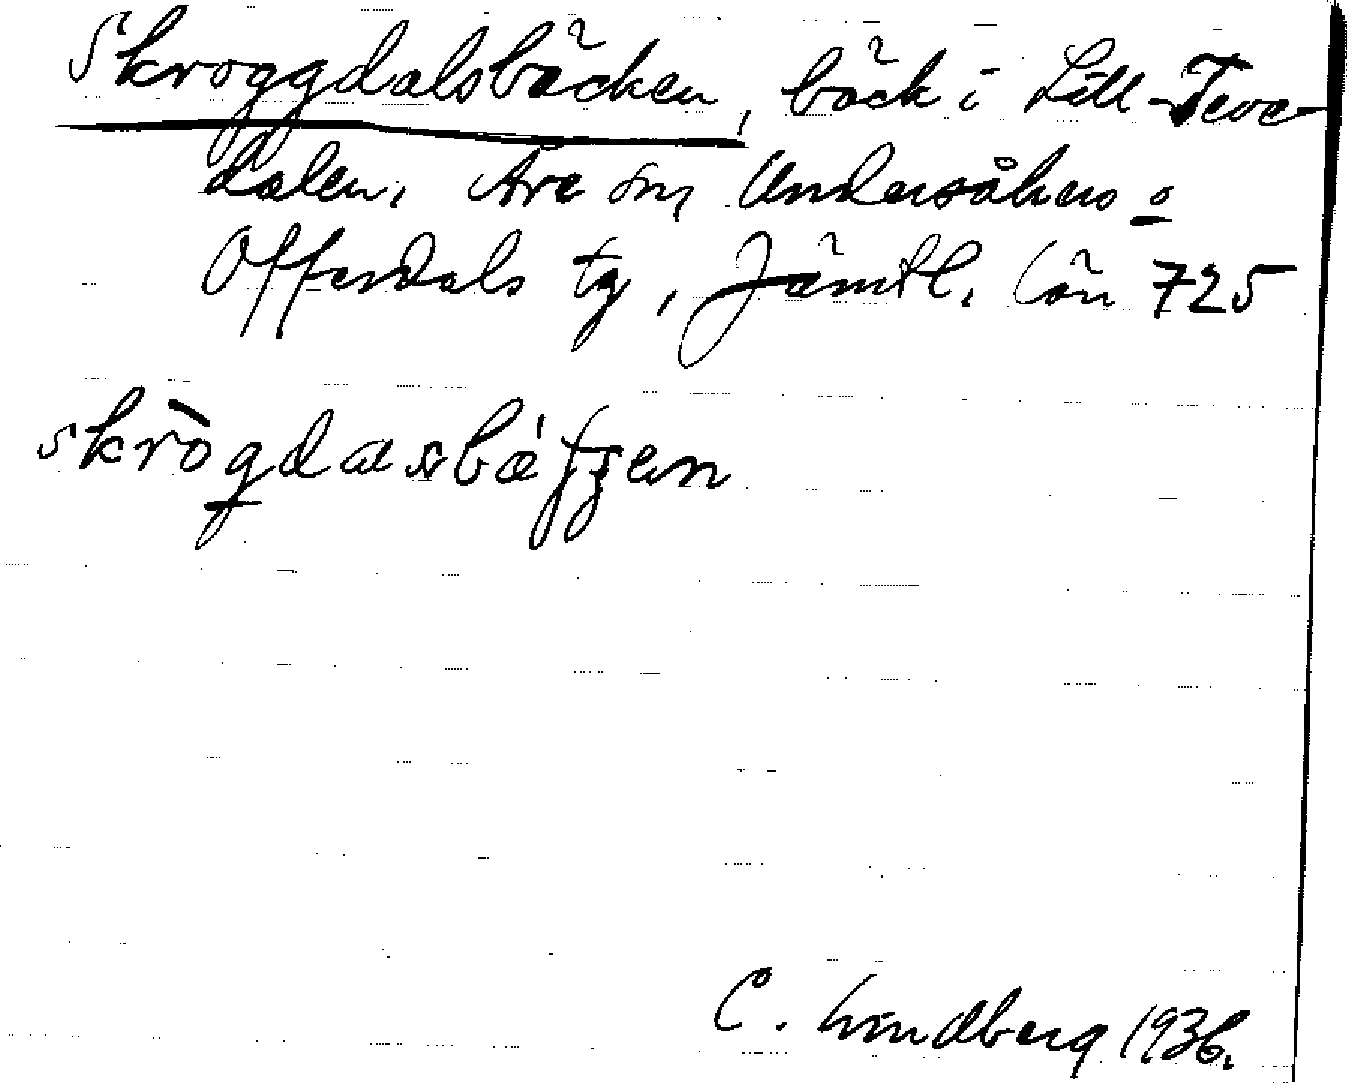 Skroggdalsbäcken, bäck i Lill-Teve-
dalen, Åre sn, Undersåkers o
Offerdals tg, Jämtl. län 725
skrògdasbáʃʒen
C. Lindberg 1936.